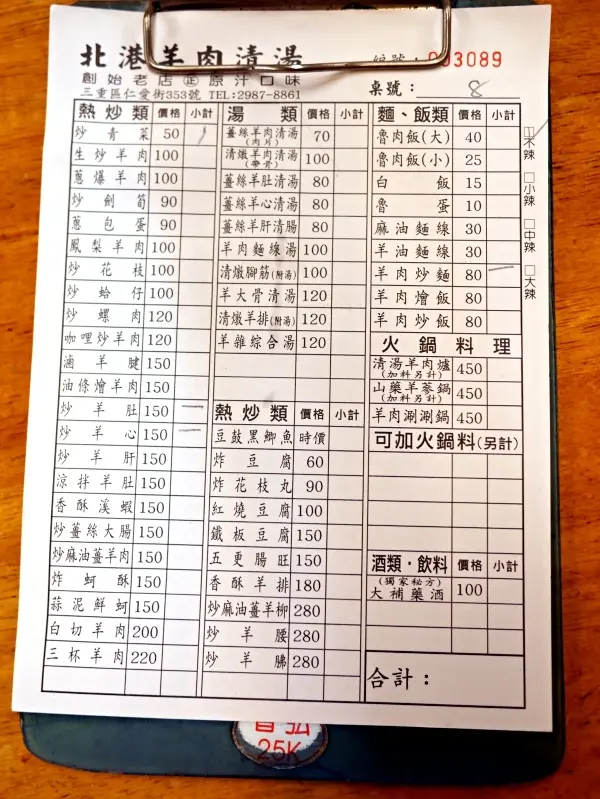 北港羊肉清湯
編號：003089
創始老店㊣原汁口味
三重區仁愛街353號 TEL:2987-8861
桌號： 8
熱炒類 價格 小計
炒青菜 50
生炒羊肉 100
蔥爆羊肉 100
炒劍筍 90
蔥包蛋 90
鳳梨羊肉 100
炒花枝 100
炒蛤仔 100
炒螺肉 120
咖哩炒羊肉 120
滷羊腱 150
油條燴羊肉 150
炒羊肚 150
炒羊心 150
炒羊肝 150
涼拌羊肚 150
香酥溪蝦 150
炒薑絲大腸 150
炒麻油薑羊肉 150
炸蚵酥 150
蒜泥鮮蚵 150
白切羊肉 200
三杯羊肉 220
湯類 價格 小計
薑絲羊肉清湯(肉片) 70
清燉羊肉清湯(帶骨) 100
薑絲羊肚清湯 80
薑絲羊心清湯 80
薑絲羊肝清腸 80
羊肉麵線湯 100
清燉腳筋(附湯) 100
羊大骨清湯 120
清燉羊排(附湯) 120
羊雜綜合湯 120
熱炒類 價格 小計
豆鼓黑鯽魚 時價
炸豆腐 60
炸花枝丸 90
紅燒豆腐 100
鐵板豆腐 150
五更腸旺 150
香酥羊排 180
炒麻油薑羊柳 280
炒羊腰 280
炒羊胇 280
麵、飯類 價格 小計
魯肉飯(大) 40
魯肉飯(小) 25
白飯 15
魯蛋 10
麻油麵線 30
羊油麵線 30
羊肉炒麵 80
羊肉燴飯 80
羊肉炒飯 80
□不辣
□小辣
□中辣
□大辣
火鍋料理
清湯羊肉爐(加料另計) 450
山藥羊蔘鍋(加料另計) 450
羊肉涮涮鍋 450
可加火鍋料(另計)
酒類·飲料 價格 小計
(獨家秘方)
大補藥酒 100
合計：
25K